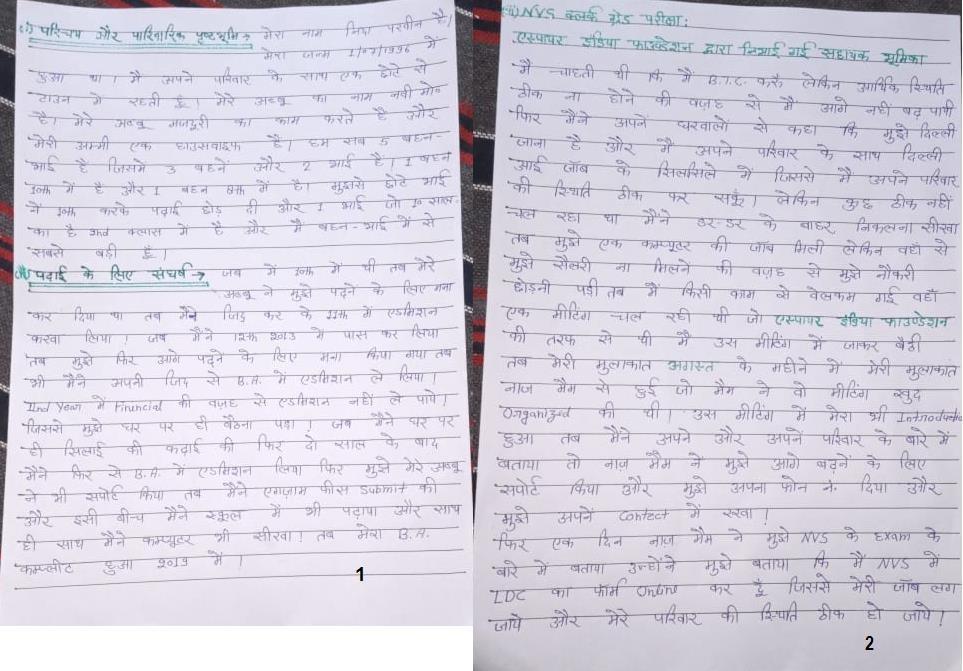 (i) परिचय और पारिवारिक पृष्टभूमि → मेरा नाम निदा परवीन है।
मेरा जन्म 1996 में
हुआ था। मै अपने परिवार के साथ एक छोटे से
टाउन मे रहती हूँ। मेरे अब्बू का नाम नबी मो०
है। मेरे अब्बू मजदूरी का काम करते है और
मेरी अम्मी एक हाउसवाइफ है। हम सब 5 बहन-
भाई है जिसमें 3 बहनें और 2 भाई है। 1 बहन
10th में है और 1 बहन 8th में है। मुझसे छोटे भाई
ने 10th करके पढ़ाई छोड़ दी और 1 भाई जो 10 साल-
का है 2nd क्लास में है और मै बहन-भाई में से
सबसे बड़ी हूँ।
(ii) पढ़ाई के लिए संघर्ष → जब में 10th में थी तब मेरे
अब्बू ने मुझे पढ़ने के लिए मना
कर दिया था तब मैंने जिद्द कर के 11th में एडमिशन
करवा लिया! जब मैंने 12th 2013 में पास कर लिया
तब मुझे फिर आगे पढ़ने के लिए मना किया गया तब
भी मैंने अपनी जिद से B.A. में एडमिशन ले लिया।
IInd Year में Financial की वज़ह से एडमिशन नहीं ले पायी।
जिससे मुझे घर पर ही बैठना पड़ा! जब मैंने घर पर
ही सिलाई की कढ़ाई की फिर दो साल के बाद
मैंने फिर से B.A. में एडमिशन लिया फिर मुझे मेरे अब्बू
ने भी सपोर्ट किया तब मैंने एग्ज़ाम फीस Submit की
और इसी बीच मैंने स्कूल में भी पढ़ाया और साथ
ही साथ मैंने कम्प्यूटर भी सीखा! तब मेरा B.A.
कम्प्लीट हुआ 2019 में।
1
NVS क्लर्क ग्रेड परीक्षा:
एस्पायर इंडिया फाउण्डेशन द्वारा निभाई गई सहायक भूमिका
मै चाहती थी कि मै B.T.C. करूँ लेकिन आर्थिक स्थिति
ठीक ना होने की वज़ह से मै आगे नहीं बढ़ पायी
फिर मैंने अपने घरवालों से कहा कि मुझे दिल्ली
जाना है और मै अपने परिवार के साथ दिल्ली
आई जॉब के सिलसिले में जिससे मै अपने परिवार
की स्थिति ठीक कर सकूँ। लेकिन कुछ ठीक नहीं
चल रहा था मैंने डर-डर के बाहर निकलना सीखा
तब मुझे एक कम्प्यूटर की जॉब मिली लेकिन वहाँ से
मुझे सैलरी ना मिलने की वज़ह से मुझे नौकरी
छोड़नी पड़ी तब मैं किसी काम से वेलकम गई वहाँ
एक मीटिंग चल रही थी जो एस्पायर इंडिया फाउण्डेशन
की तरफ से थी मै उस मीटिंग में जाकर बैठी
तब मेरी मुलाकात अगस्त के महीने में मेरी मुलाकात
नाज मैम से हुई जो मैम ने वो मीटिंग खुद
Organized की थी। उस मीटिंग में मेरा भी Introduction
हुआ तब मैंने अपने और अपने परिवार के बारे में
बताया तो नाज़ मैम ने मुझे आगे बढ़ने के लिए
सपोर्ट किया और मुझे अपना फोन नं. दिया और
मुझे अपने Contect में रखा!
फिर एक दिन नाज़ मैम ने मुझे NVS के Exam के
बारे में बताया उन्होंने मुझे बताया कि मैं NVS में
LDC का फॉर्म Online कर दूँ जिससे मेरी जॉब लग
जाये और मेरे परिवार की स्थिति ठीक हो जाये!
2